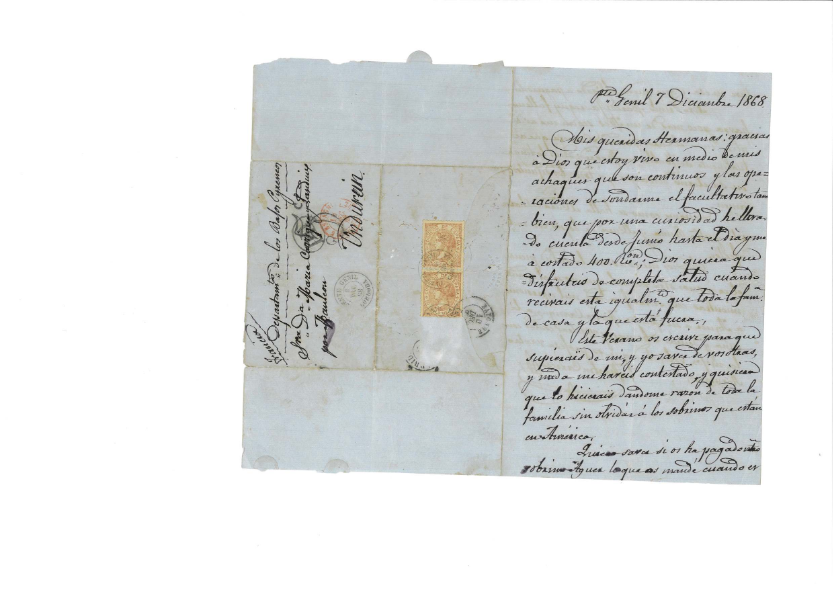 Pte. Genil 7 Diciembre 1868
Mis queridas Hermanas: gracias
á Dios que estoy vivo en medio de mis
achaques que son continuos y las ope=
raciones de sondarme el facultativo tam
bien, que por una curiosidad he lleva-
do cuenta desde Junio hasta el dia y me
á costado 400 Ron; Dios quiera que
disfruteis de completa salud cuando
recivais esta igualmte. que toda la fam.
de casa y la que está fuera.,
Este Verano os escrivi para que
supierais de mi, y yo saver de vosotras,
y nada me haveis contestado, y quisiera
que lo hicierais dandome razon de toda la
familia sin olvidar á los sobrinos que están
en América.
Quiero saver si os ha pagado ntro
sobrino Aguer lo que os mandé cuando er
Francia
Departamto de los Bajos Pyreneos
Sra Da Maria
por Mauleon
Undurein